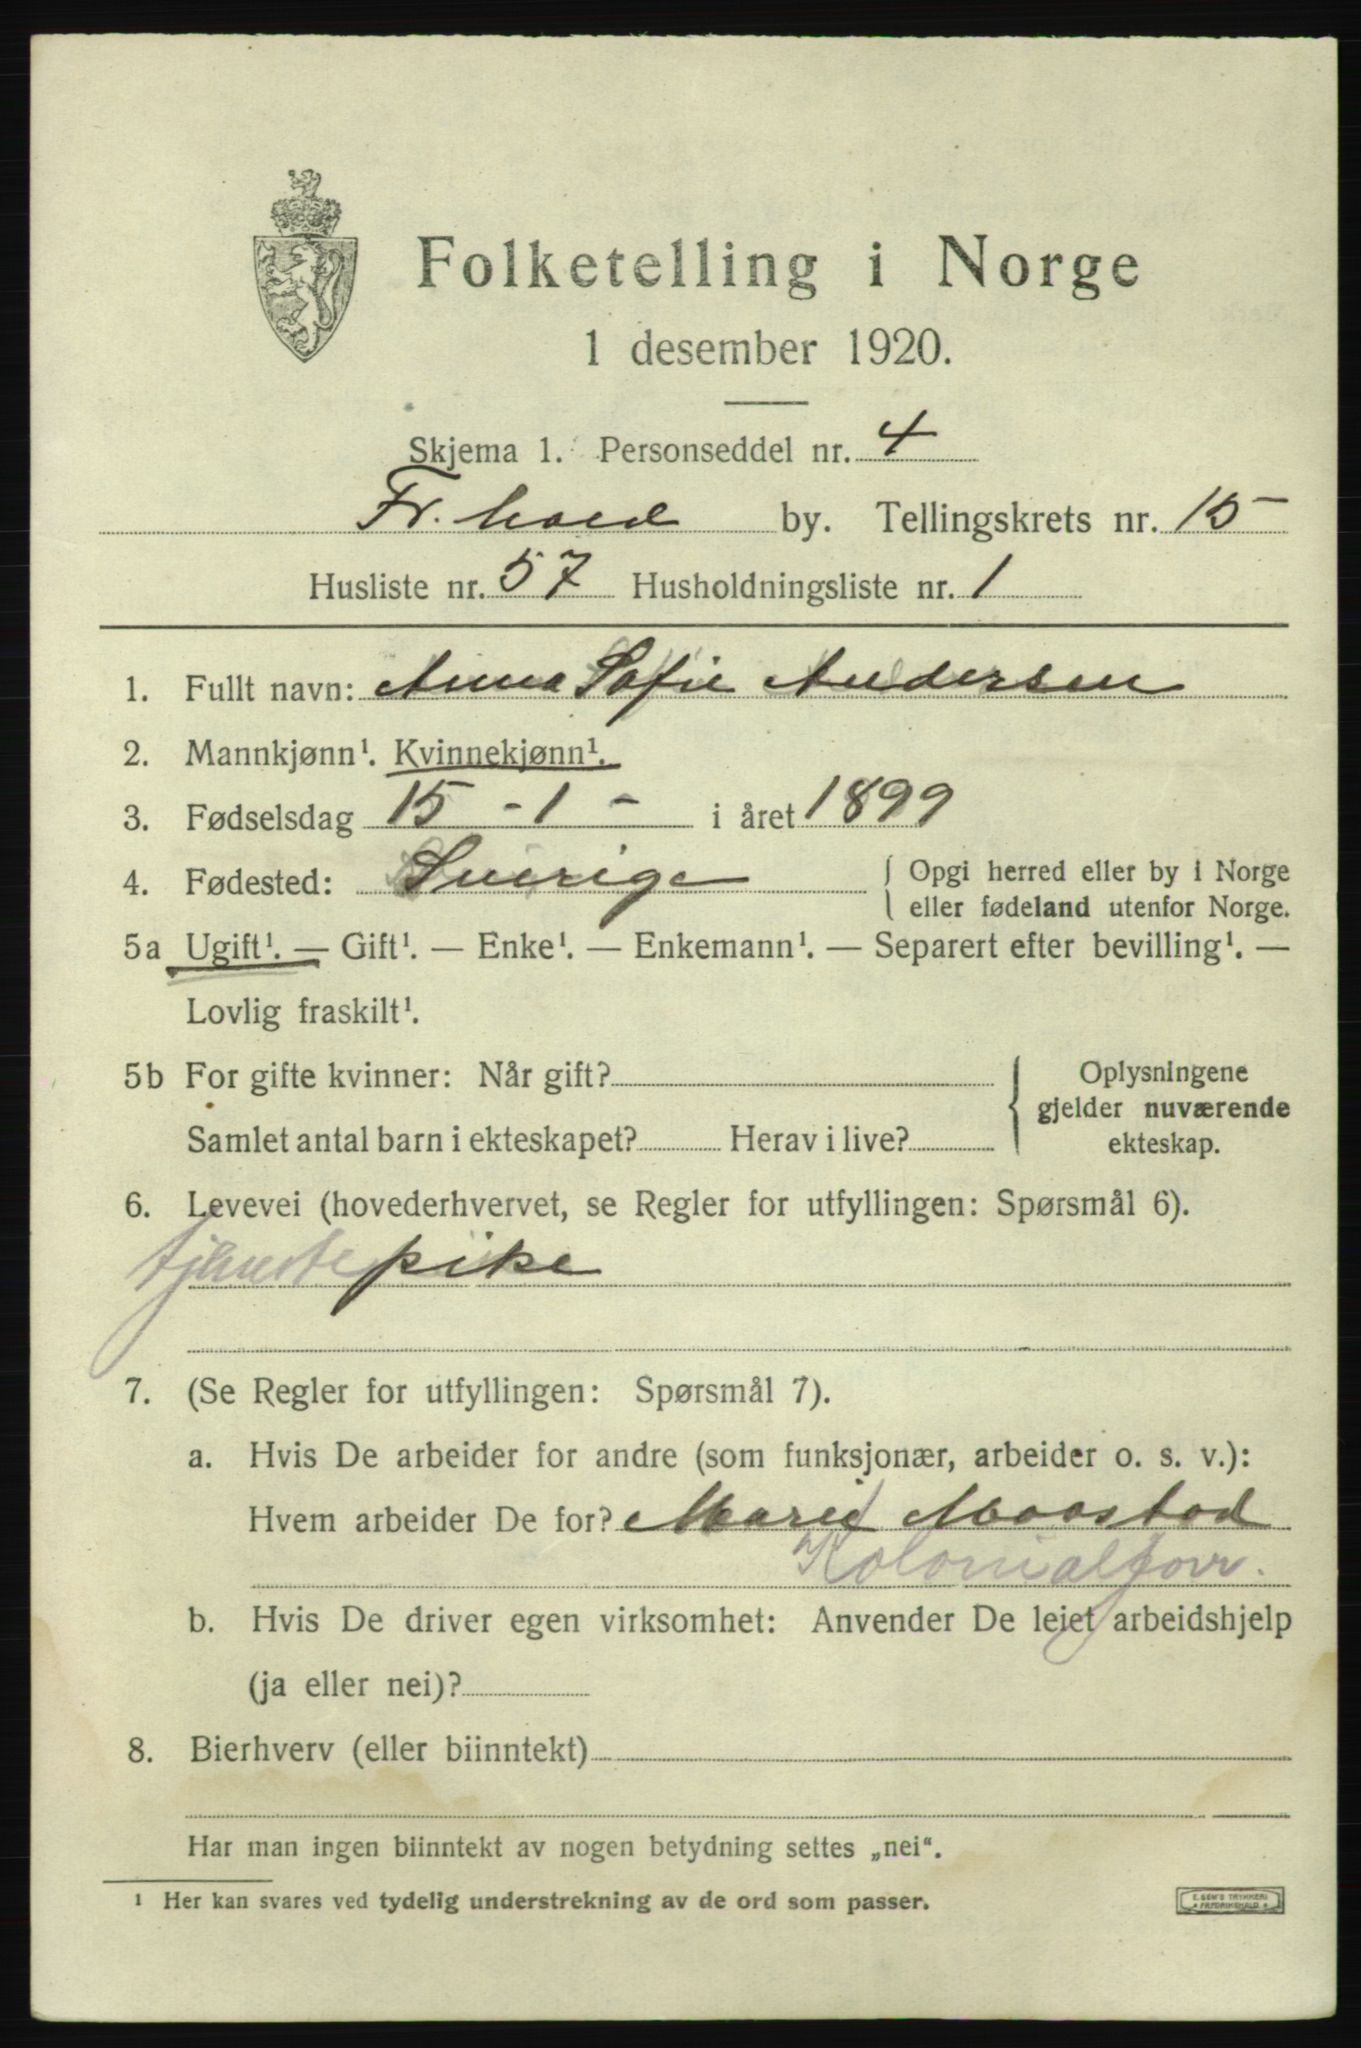 Folketelling i Norge
1 desember 1920.
Skjema 1. Personseddel nr. 4
Fr. hald by. Tellingskrets nr. 15
Husliste nr. 57 Husholdningsliste nr. 1
1. Fullt navn: Anna Sofie Andersen
2. Mannkjønn¹. Kvinnekjønn¹.
3. Fødselsdag 15 - 1 - i året 1899
4. Fødested: Sverige { Opgi herred eller by i Norge
eller fødeland utenfor Norge.
5a Ugift¹. — Gift¹. — Enke¹. — Enkemann¹. — Separert efter bevilling¹. —
Lovlig fraskilt¹.
5b For gifte kvinner: Når gift? { Oplysningene
gjelder nuværende
Samlet antal barn i ekteskapet? Herav i live? ekteskap.
6. Levevei (hovederhvervet, se Regler for utfyllingen: Spørsmål 6).
tjenestepike
7. (Se Regler for utfyllingen: Spørsmål 7).
a. Hvis De arbeider for andre (som funksjonær, arbeider o. s. v.):
Hvem arbeider De for? Marie
Kolonialforr.
b. Hvis De driver egen virksomhet: Anvender De leiet arbeidshjelp
(ja eller nei)?
8. Bierhverv (eller biinntekt)
Har man ingen biinntekt av nogen betydning settes „nei“.
¹ Her kan svares ved tydelig understrekning av de ord som passer.
E. SEM'S TRYKKERI
FREDRIKSHALD